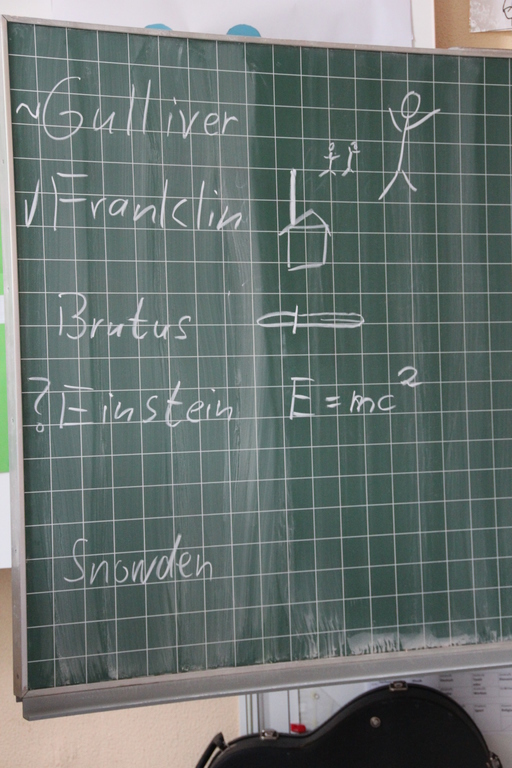 ~Gulliver
√Franklin
Brutus
?Einstein E=mc²
Snowden